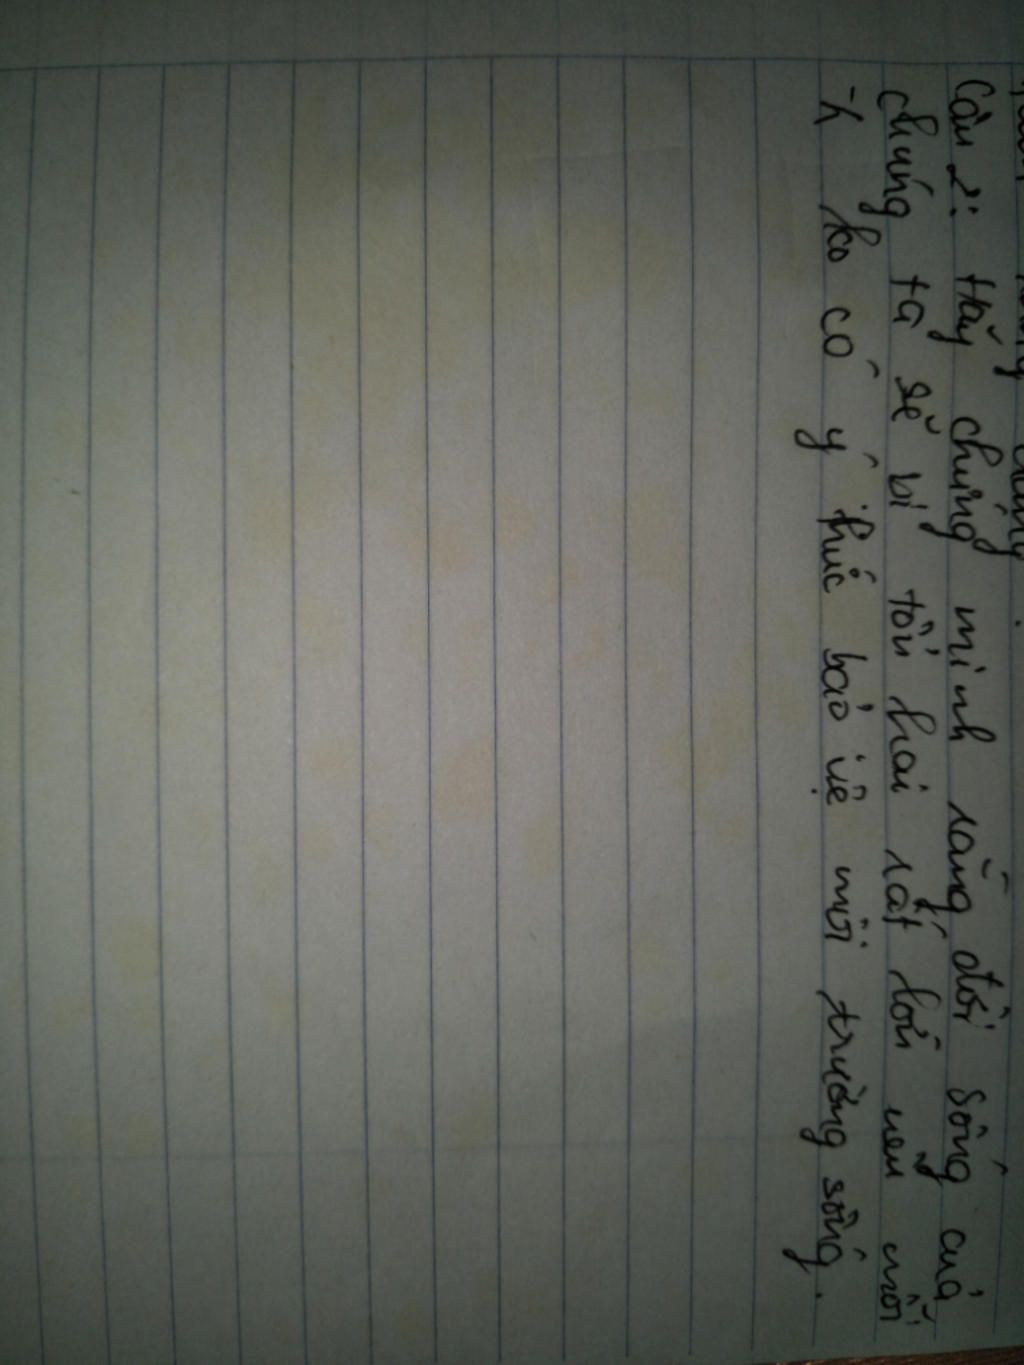 Câu 2: Hãy chứng minh rằng đời sống của
chúng ta sẽ bị tổn hại rất lớn nếu mỗi
ko có ý thức bảo vệ môi trường sống.